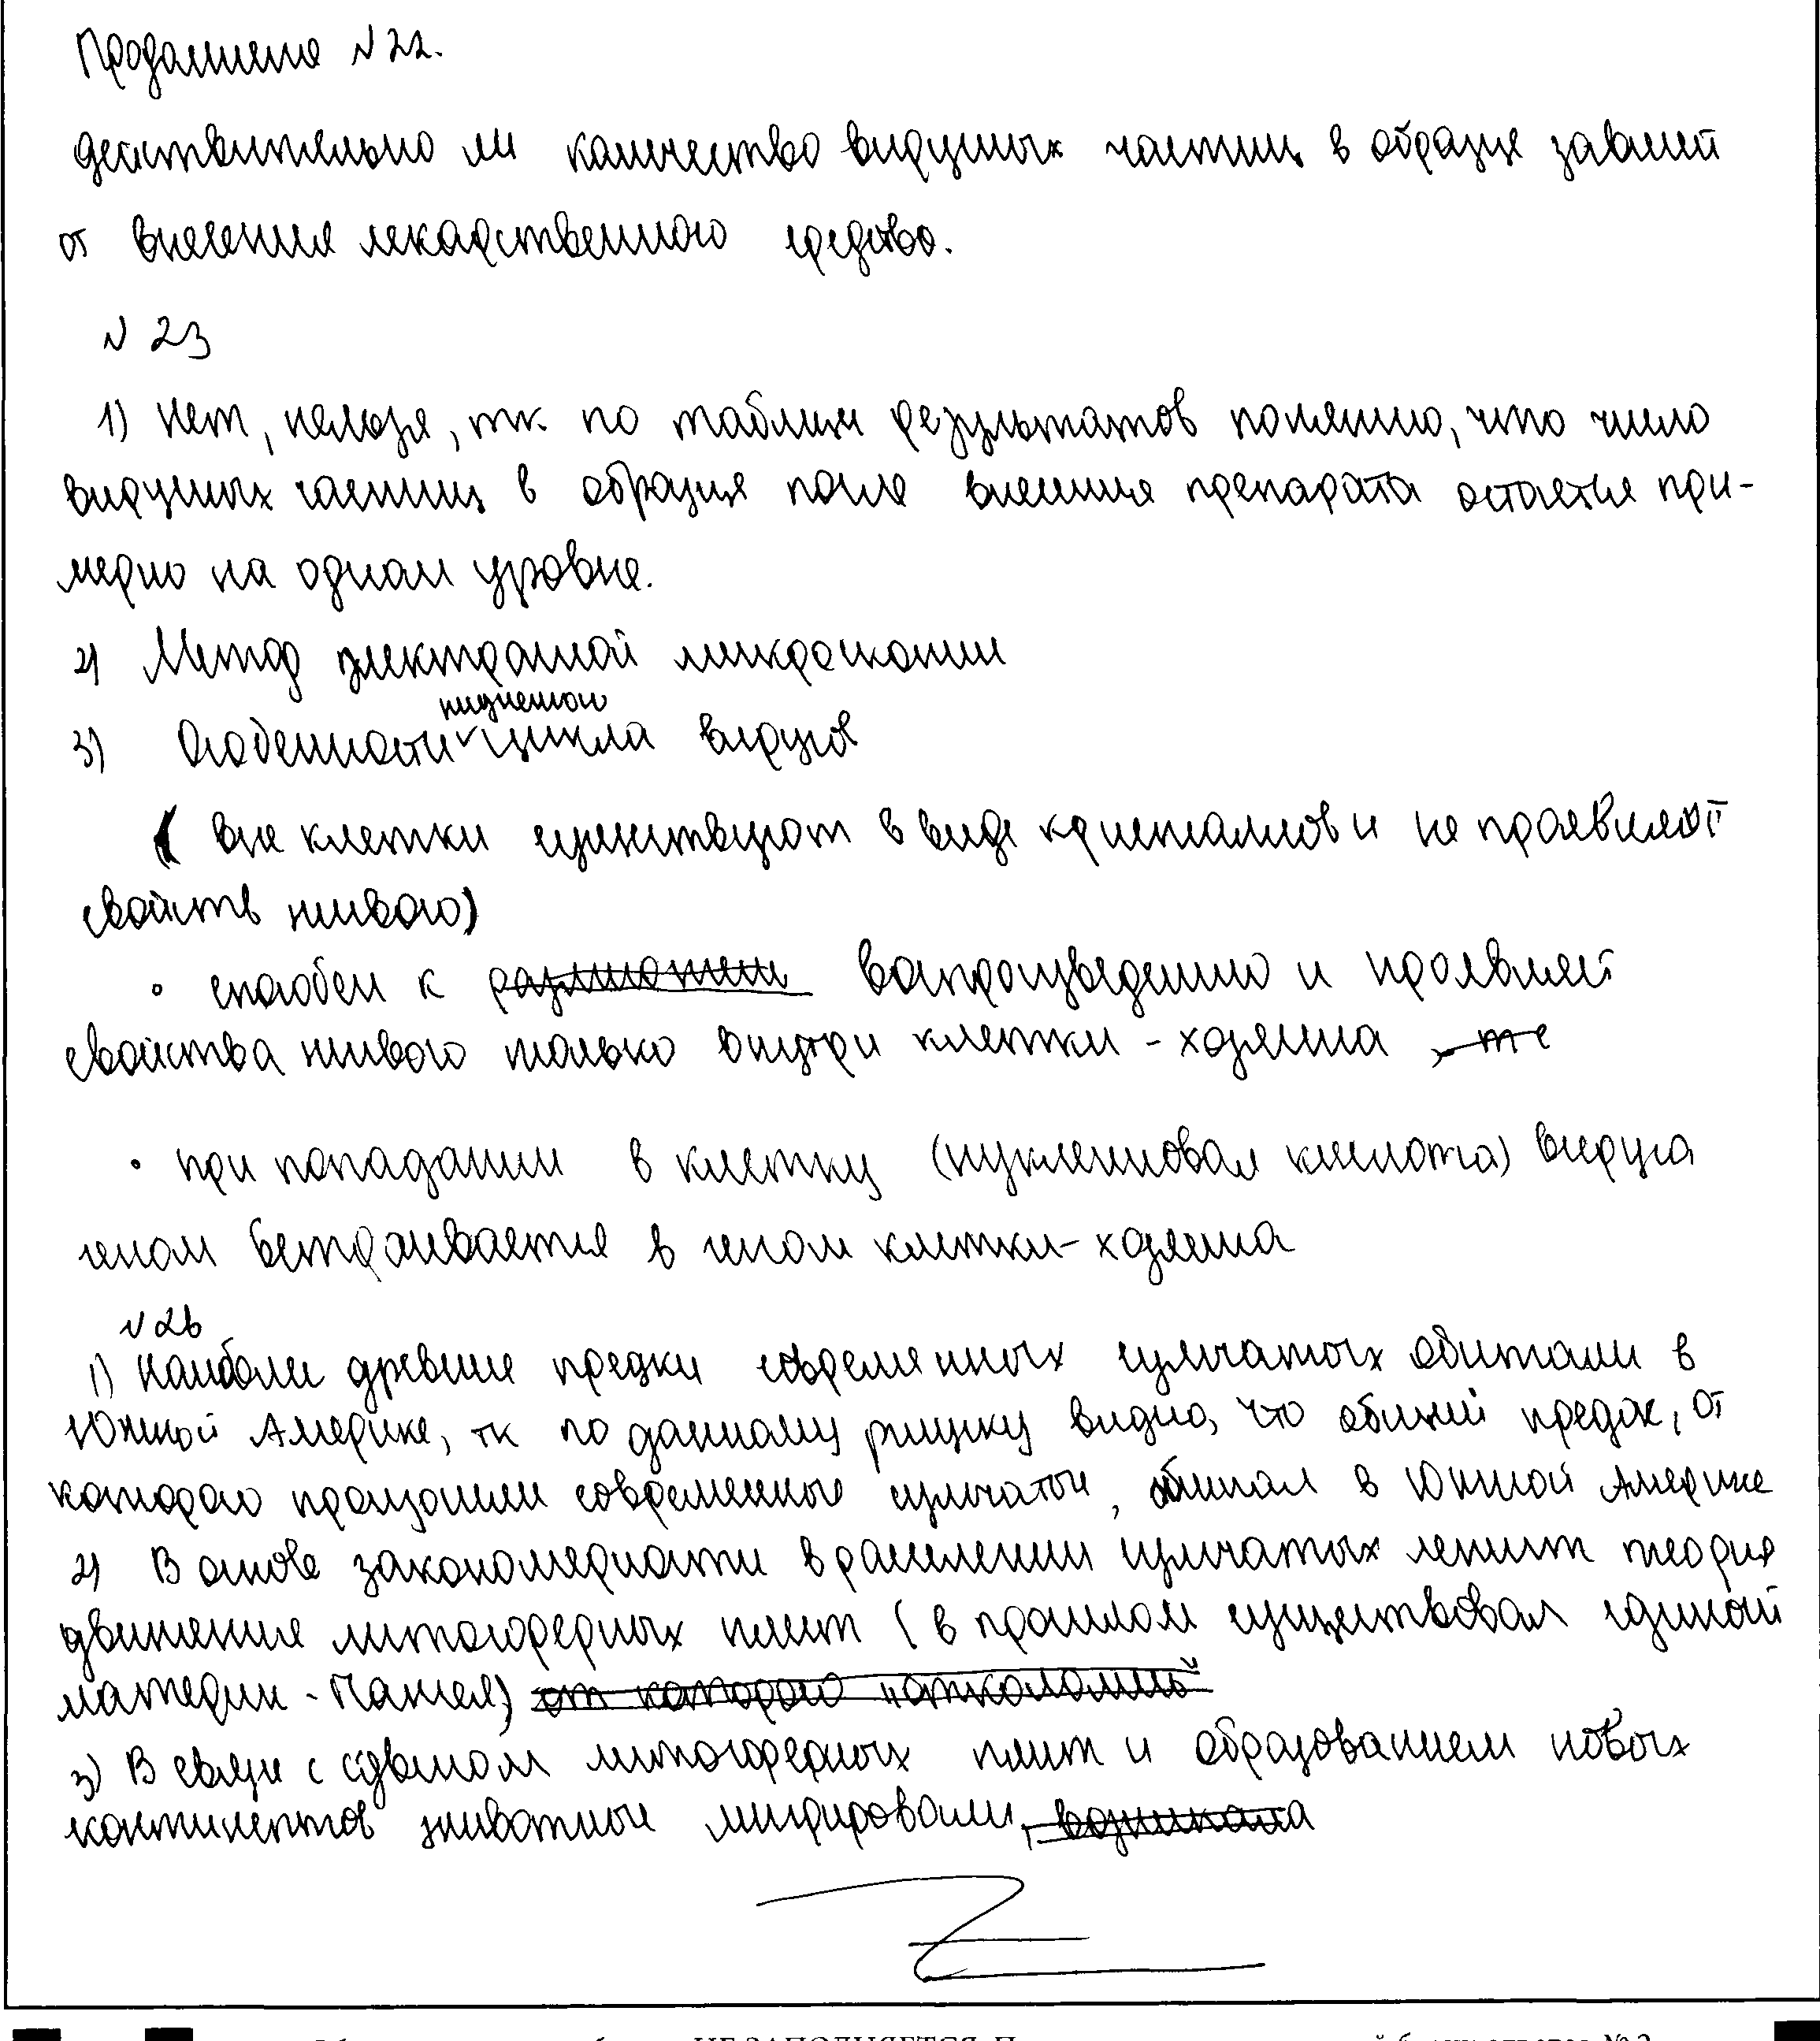 Продолжение №22.
действительно ли количество вирусных частиц в образце зависит
от внесения лекарственного средства.
№ 23
1) Нет, нельзя, тк по таблице результатов понятно, что число
вирусных частиц в образце после внесения препарата остаётся при-
мерно на одном уровне.
2) Метод электронной микроскопии
жизненного
3) Особенности цикла вирусов
( вне клетки существуют в виде кристаллов и не проявляют
свойств живого)
• способен к размножени воспроизведению и проявляет
свойства живого только внутри клетки - хозяина , те
• при попадании в клетку (нуклеиновая кислота) вируса
геном встраивается в геном клетки-хозяина
№ 26
1) Наиболее древние предки современных сумчатых обитали в
Южной Америке, тк по данному рисунку видно, что общий предок, от
которого произошли современные сумчатые, обитал в Южной Америке
2) В основе закономерности в расселении сумчатых лежит теория
движения литосферных плит (в прошлом существовал единый
материк - Пангея) от которого "откололись"
3) В связи с сдвигом литосферных плит и образованием новых
континентов животные мигрировали, возникала